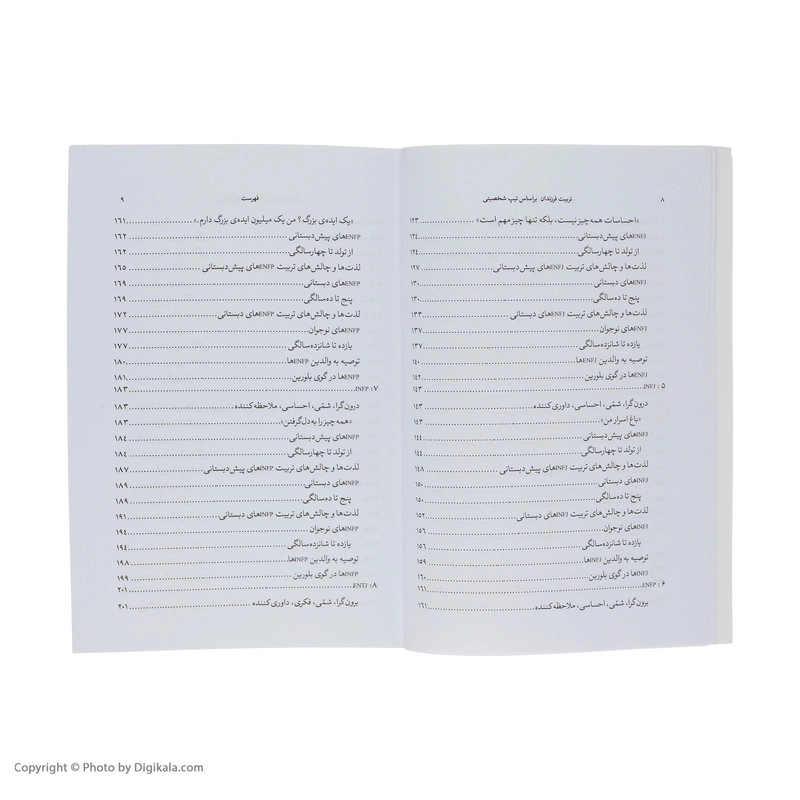 ۸ تربیت فرزندان براساس تیپ شخصیتی
«احساسات همه‌چیز نیست، بلکه تنها چیز مهم است» ........ ۱۲۳
ENFJهای پیش‌دبستانی ........ ۱۲۴
از تولد تا چهارسالگی ........ ۱۲۴
لذت‌ها و چالش‌های تربیت ENFJهای پیش‌دبستانی ........ ۱۲۷
ENFJهای دبستانی ........ ۱۳۰
پنج تا ده‌سالگی ........ ۱۳۰
لذت‌ها و چالش‌های تربیت ENFJهای دبستانی ........ ۱۳۳
ENFJهای نوجوان ........ ۱۳۷
یازده تا شانزده‌سالگی ........ ۱۳۷
توصیه به والدین ENFJها ........ ۱۴۰
ENFJها در گوی بلورین ........ ۱۴۲
۵ : INFJ ........ ۱۴۳
درون‌گرا، شمّی، احساسی، داوری‌کننده ........ ۱۴۳
«باغ اسرار من» ........ ۱۴۳
INFJهای پیش‌دبستانی ........ ۱۴۴
از تولد تا چهارسالگی ........ ۱۴۴
لذت‌ها و چالش‌های تربیت INFJهای پیش‌دبستانی ........ ۱۴۸
INFJهای دبستانی ........ ۱۵۰
پنج تا ده‌سالگی ........ ۱۵۰
لذت‌ها و چالش‌های تربیت INFJهای دبستانی ........ ۱۵۲
INFJهای نوجوان ........ ۱۵۶
یازده تا شانزده‌سالگی ........ ۱۵۶
توصیه به والدین INFJها ........ ۱۵۹
INFJها در گوی بلورین ........ ۱۶۰
۶ : ENFP ........ ۱۶۱
برون‌گرا، شمّی، احساسی، ملاحظه‌کننده ........ ۱۶۱
فهرست ۹
«یک ایده‌ی بزرگ؟ من یک میلیون ایده‌ی بزرگ دارم.» ........ ۱۶۱
ENFPهای پیش‌دبستانی ........ ۱۶۲
از تولد تا چهارسالگی ........ ۱۶۲
لذت‌ها و چالش‌های تربیت ENFPهای پیش‌دبستانی ........ ۱۶۵
ENFPهای دبستانی ........ ۱۶۹
پنج تا ده‌سالگی ........ ۱۶۹
لذت‌ها و چالش‌های تربیت ENFPهای دبستانی ........ ۱۷۲
ENFPهای نوجوان ........ ۱۷۷
یازده تا شانزده‌سالگی ........ ۱۷۷
توصیه به والدین ENFPها ........ ۱۸۰
ENFPها در گوی بلورین ........ ۱۸۱
۷ : INFP ........ ۱۸۳
درون‌گرا، شمّی، احساسی، ملاحظه‌کننده ........ ۱۸۳
«همه‌چیز را به دل گرفتن» ........ ۱۸۳
INFPهای پیش‌دبستانی ........ ۱۸۴
از تولد تا چهارسالگی ........ ۱۸۴
لذت‌ها و چالش‌های تربیت INFPهای پیش‌دبستانی ........ ۱۸۷
INFPهای دبستانی ........ ۱۸۹
پنج تا ده‌سالگی ........ ۱۸۹
لذت‌ها و چالش‌های تربیت INFPهای دبستانی ........ ۱۹۱
INFPهای نوجوان ........ ۱۹۴
یازده تا شانزده‌سالگی ........ ۱۹۴
توصیه به والدین INFPها ........ ۱۹۸
INFPها در گوی بلورین ........ ۱۹۹
۸ : ENTJ ........ ۲۰۱
برون‌گرا، شمّی، فکری، داوری‌کننده ........ ۲۰۱
Copyright © Photo by Digikala.com